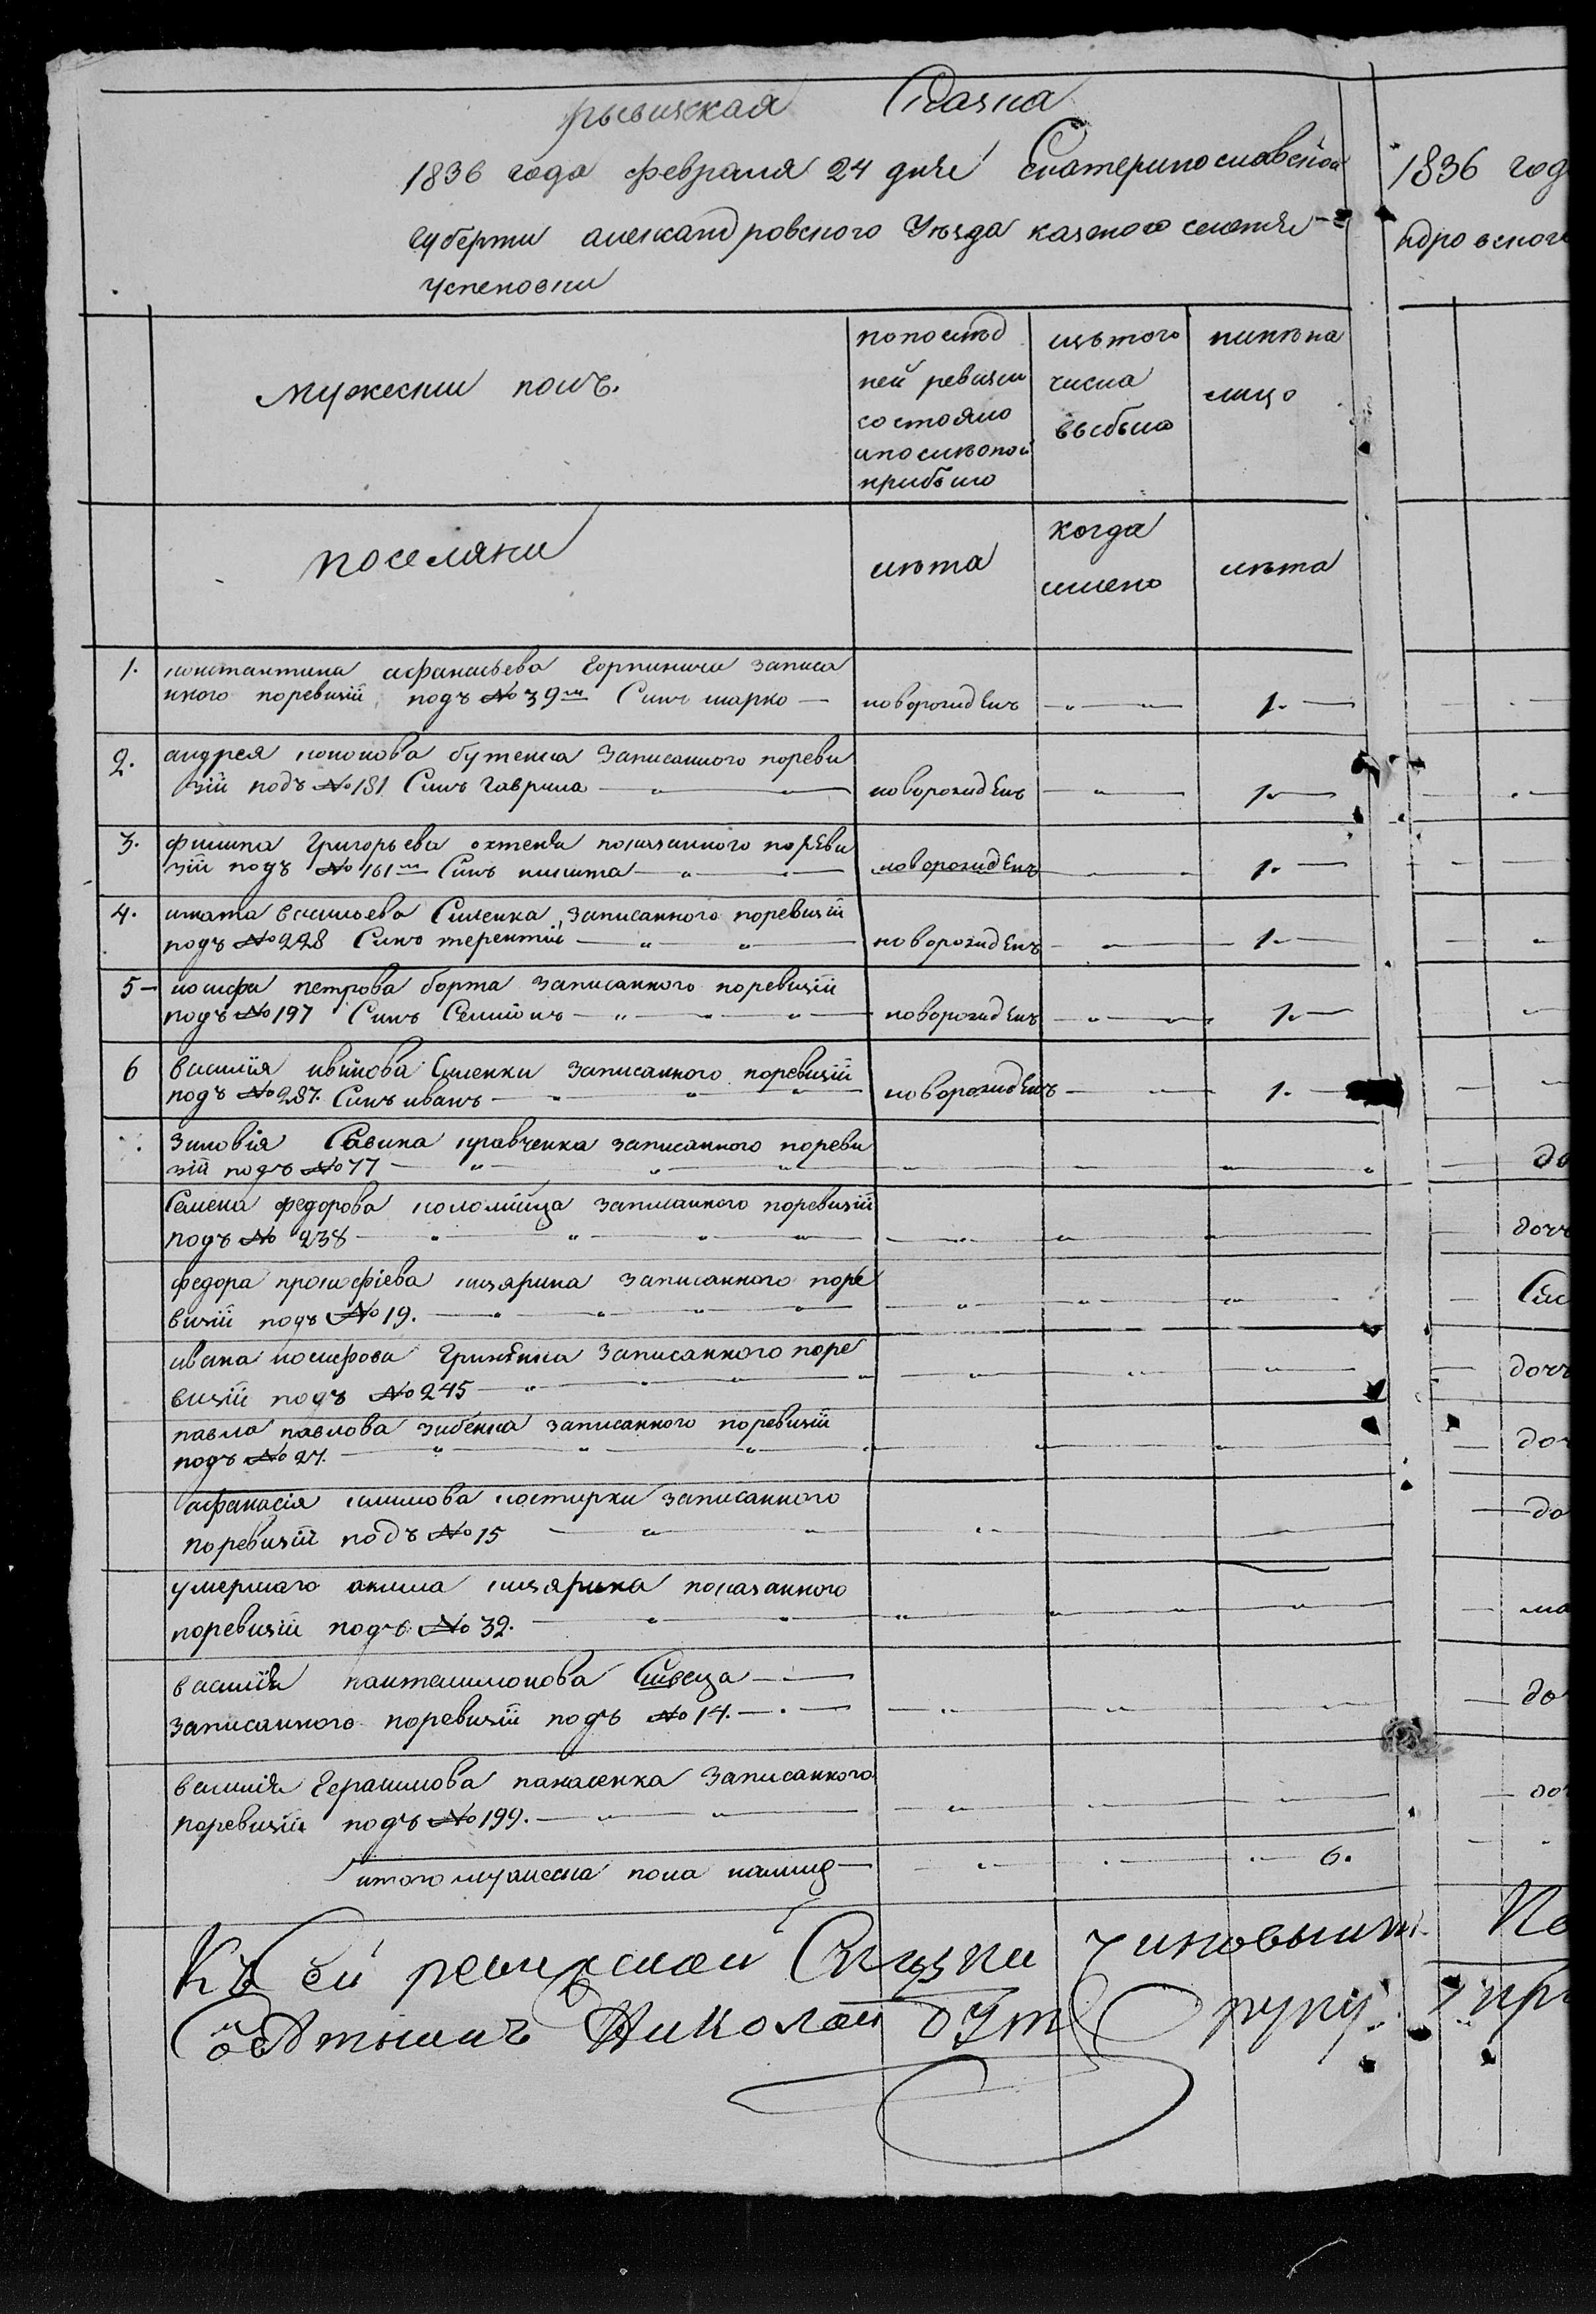 рывизская Сказка
1836 года февраля 24 дня Екатеринославской
губерти александровского Уѣзда казеного селения
Успеновки
мужески полъ.
по послѣд
ней ревизи
состояло
ипослѣоной
прибыло
изътого
числа
выбыло
нинѣна
лицо
поселяни
лѣта
когда
имено
лѣта
1. константина афанасьева Горпинича записа
нного поревизій подъ № 39м Синъ марко новорожидЕнъ 1.
2. андрея кононова бутенка Записанного пореви
зій подъ № 181 Синъ гаврила новорожидЕнъ 1.
3. филипа Григорьева охтеня показанного порЕви
зій подъ № 161м Синъ никита новорожидЕнъ 1.
4. игната васильева Силенка Записанного поревизій
подъ № 228 Синъ терентій новорожидЕнъ 1.
5 иосифа петрова борта записанного поревизій
подъ № 197 Синъ Семионъ новорожидЕнъ 1.
6 василія иванова Силенки записанного поревизій
подъ № 287. Синъ иванъ новорожидЕнъ 1.
Зиновія Савина кравченка записанного пореви
зій подъ № 77
Семена федорова коломійца записанного поревизій
подъ № 238
федора прокофіева кизярина записанного поре
визій подъ № 19.
ивана иосифова Гринёика Записанного поре
визій подъ № 245
павла павлова зибенка записанного поревизій
подъ № 27.
афанасія климова костирки записанного
поревизій подъ № 15
умершаго акима кизярика показанного
поревизій подъ № 32.
василія пантелимонова Сивеца
записанного поревизій подъ № 14.
василія Герасимова панасенка Записанного
поревизій подъ № 199.
итого мужеска пола налицо 6.
Къ Сей ревизской Сказки
Николай руку
1836 год
ндровского